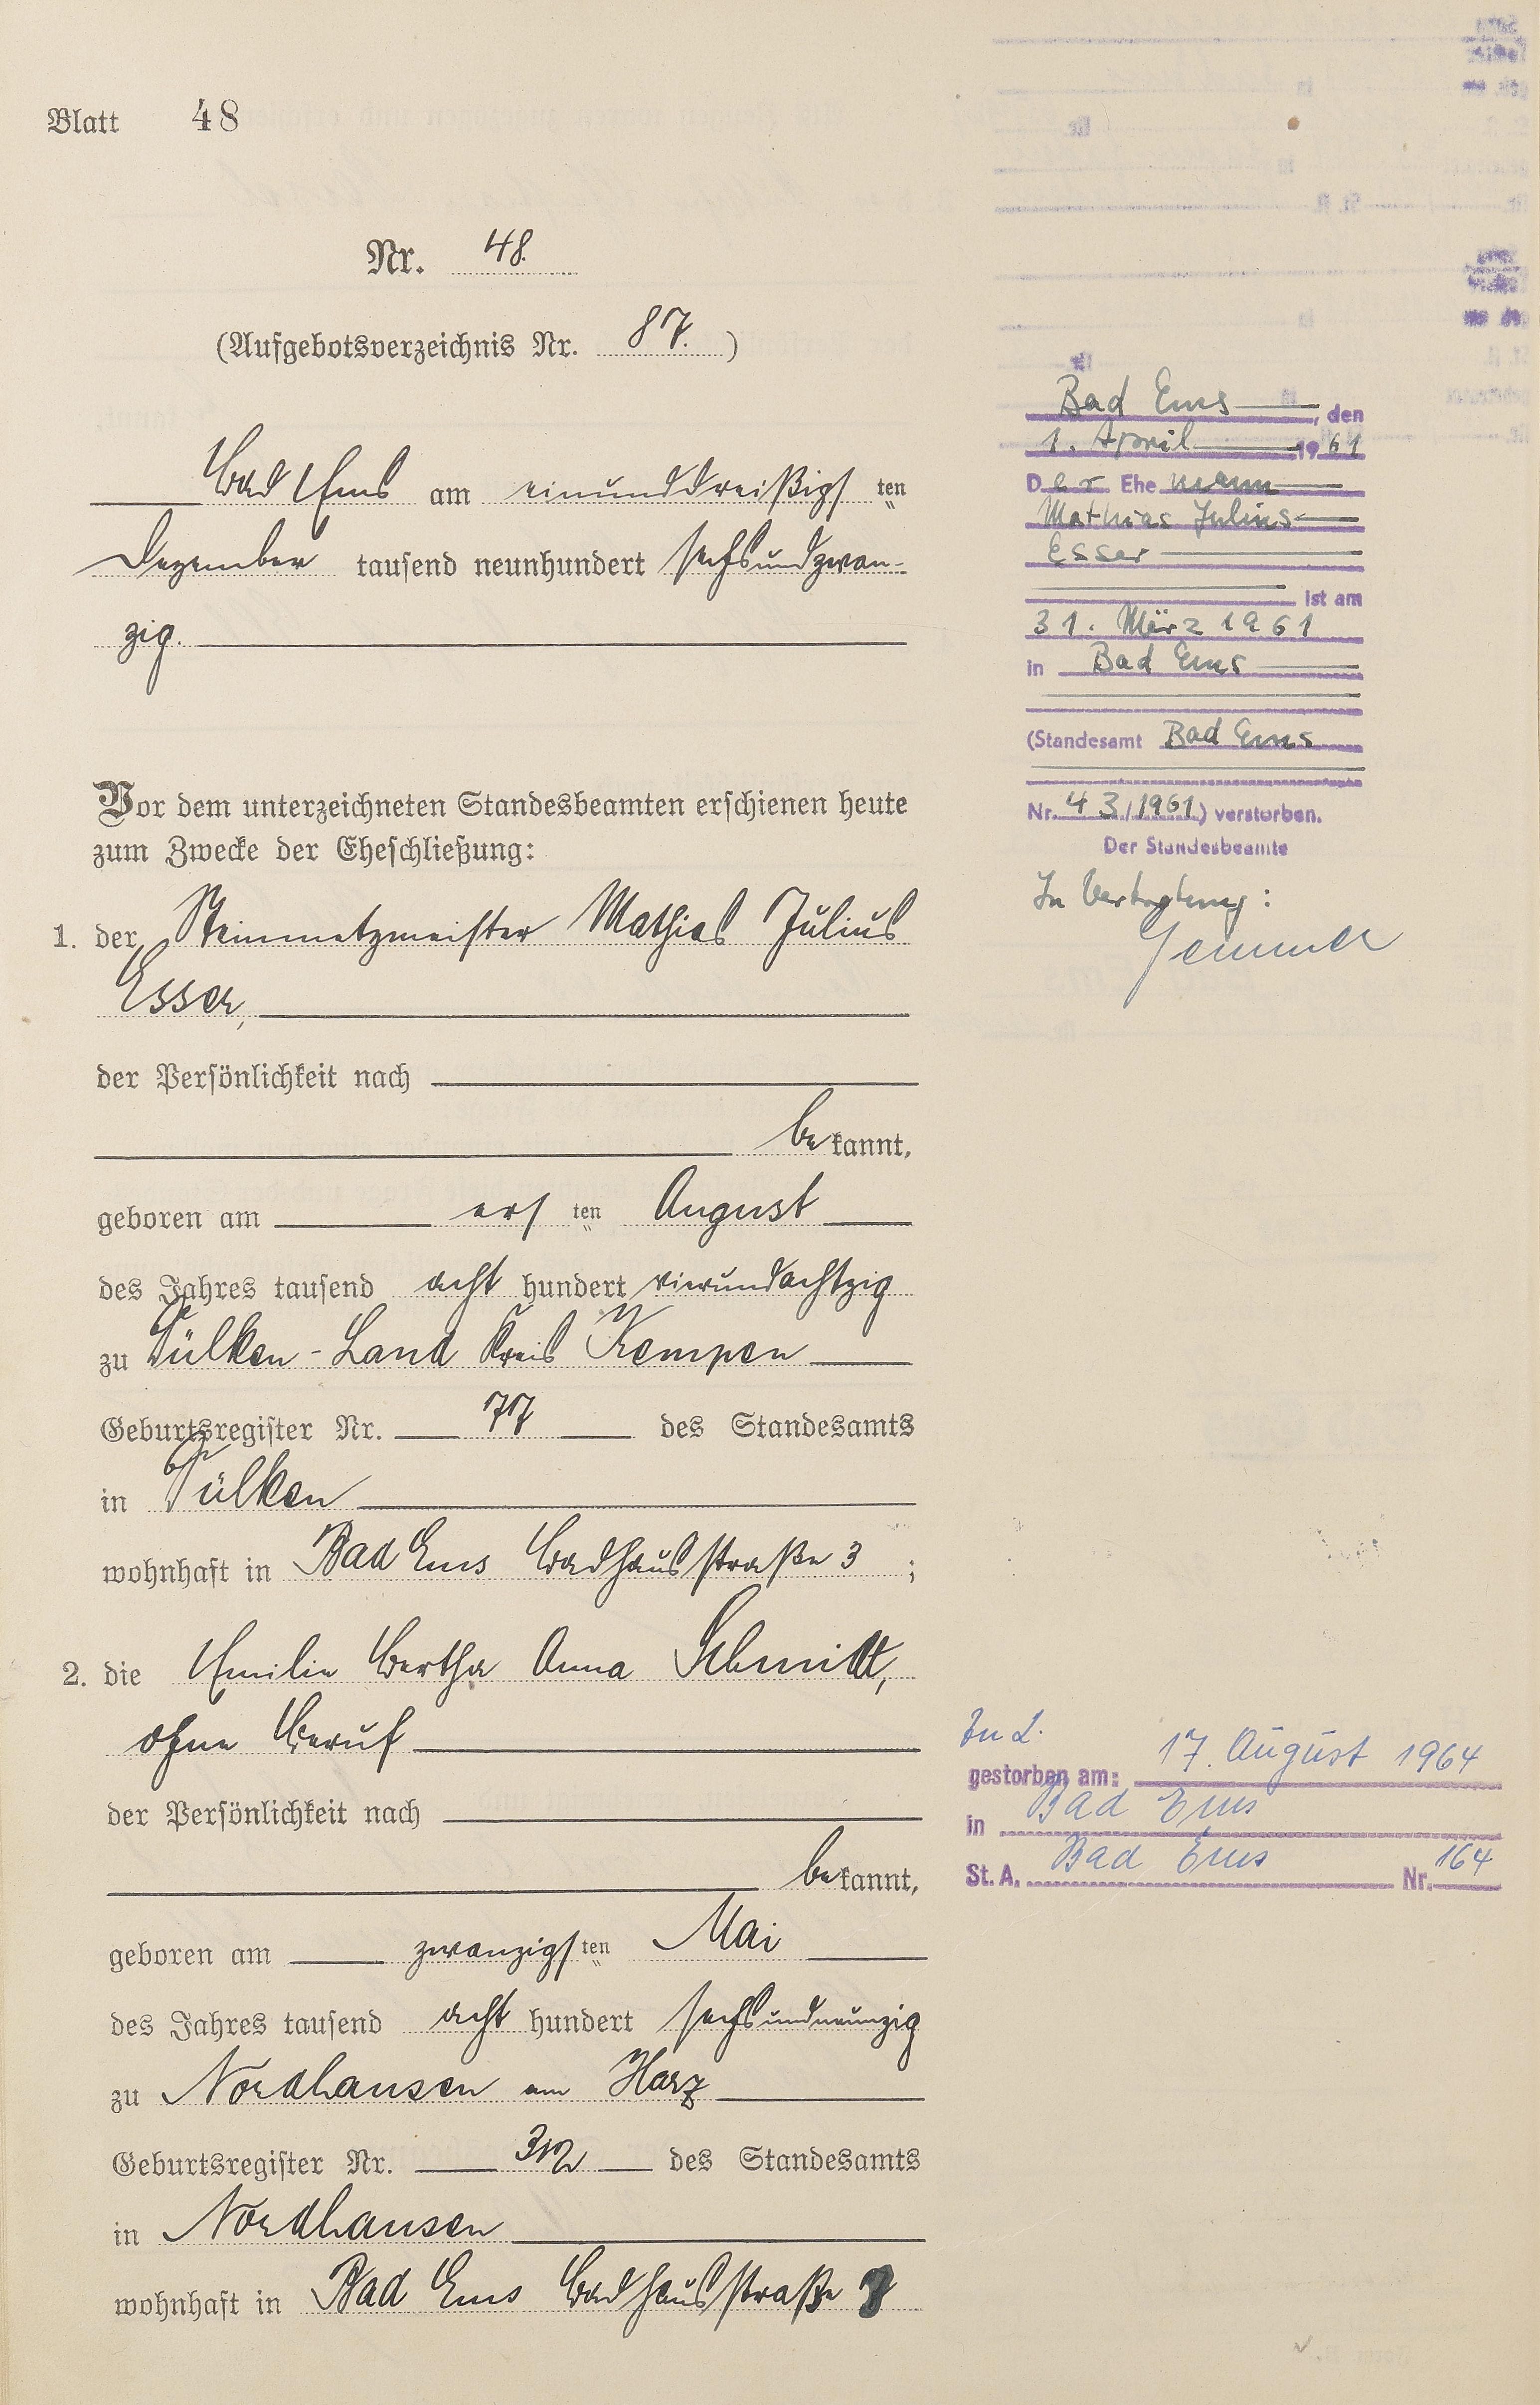 Blatt 48
Nr. 48.
(Aufgebotsverzeichnis Nr. 87.)
Bad Ems am einunddreißigsten
Dezember tausend neunhundert sechsundzwan-
zig.
Vor dem unterzeichneten Standesbeamten erschienen heute
zum Zwecke der Eheschließung:
1. der Steinmetzmeister Mathias Julius
Esser,
der Persönlichkeit nach
bekannt,
geboren am ersten August
des Jahres tausend acht hundert vierundachtzig
zu Sülken-Land Kreis Kempen
Geburtsregister Nr. 77 des Standesamts
in Sülken
wohnhaft in Bad Ems Badhausstraße 3;
2. die Emilie Bertha Anna Schmitt,
ohne Beruf
der Persönlichkeit nach
bekannt,
geboren am zwanzigsten Mai
des Jahres tausend acht hundert sechsundneunzig
zu Nordhausen am Harz
Geburtsregister Nr. des Standesamts
in Nordhausen
wohnhaft in Bad Ems Badhausstraße
Bad Ems, den
1. April 1961
Der Ehemann
Mathias Julius
Esser
ist am
31. März 1961
in Bad Ems
(Standesamt Bad Ems
Nr. 43/1961) verstorben.
Der Standesbeamte
In Vertretung:
Gemmer
Zu 2.
gestorben am: 17. August 1964
in Bad Ems
St. A. Bad Ems Nr. 164